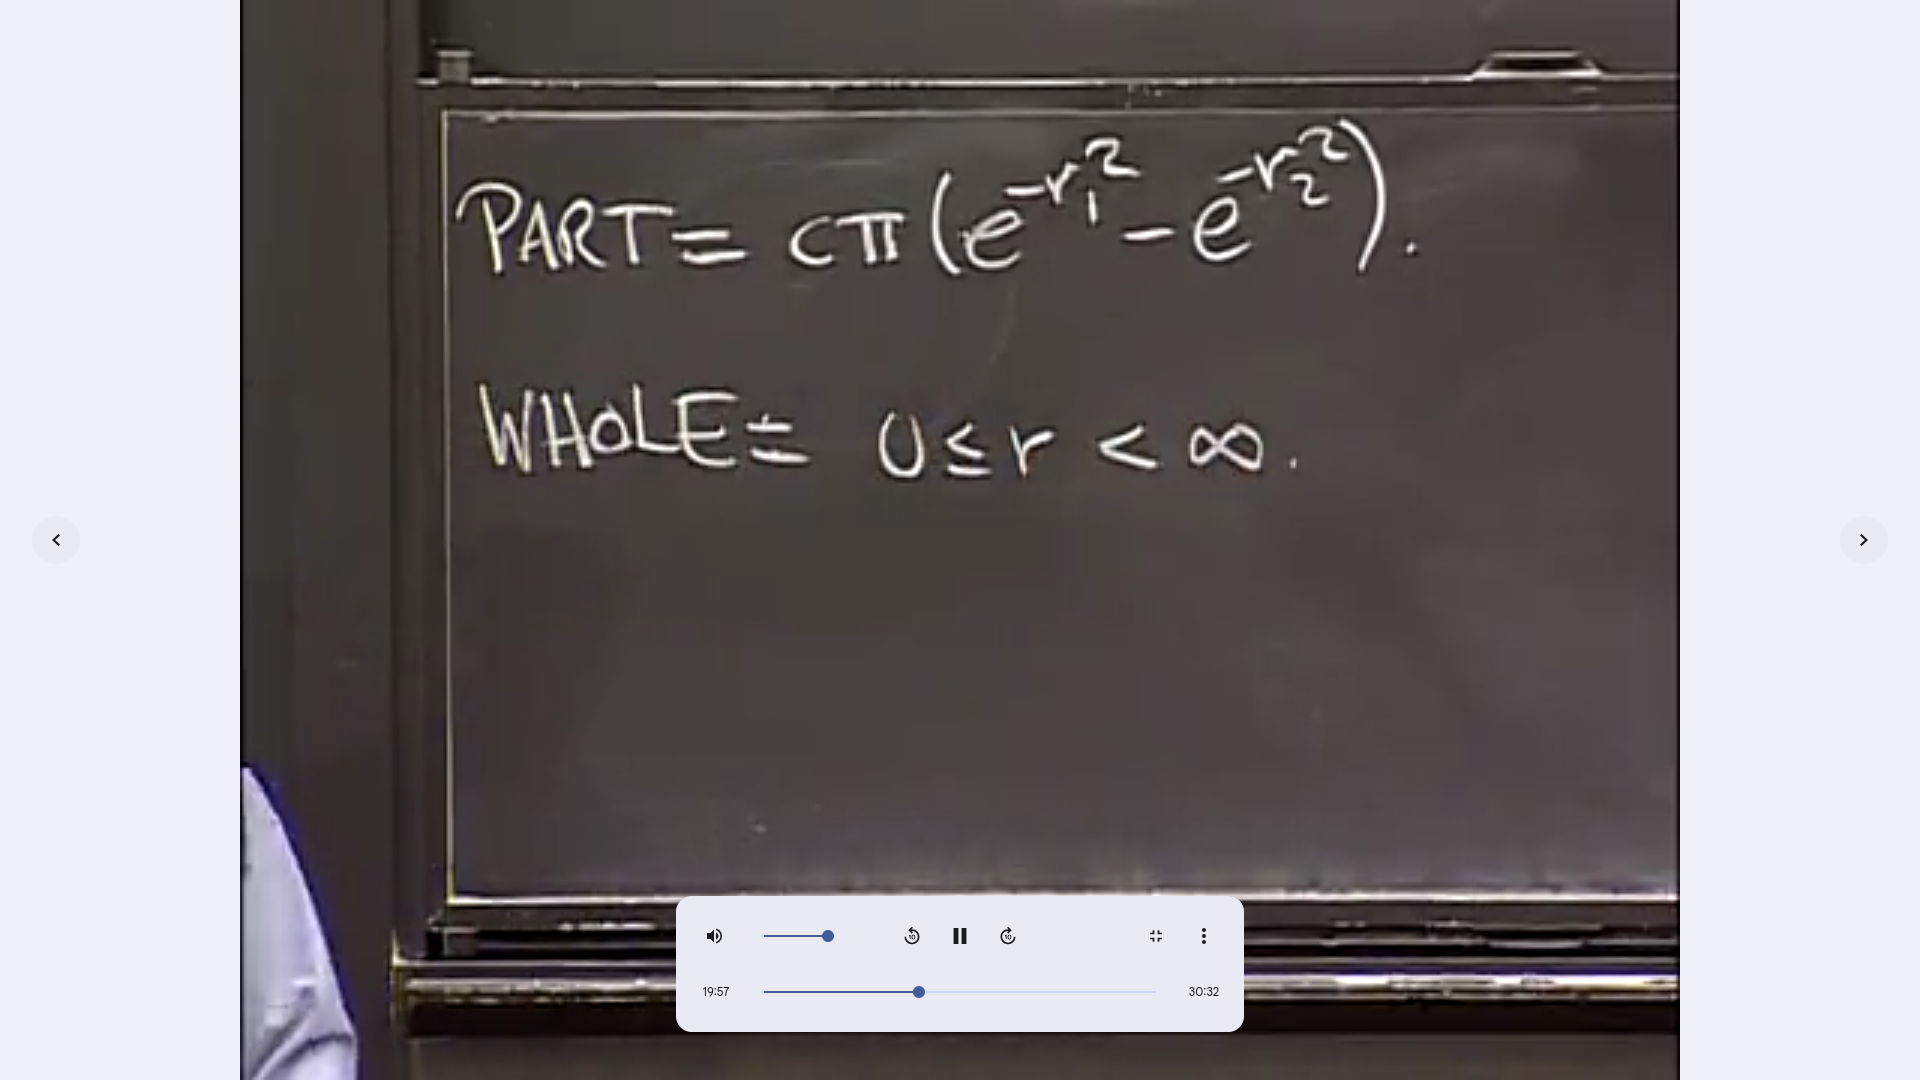 PART = cπ(e^{-r₁²} - e^{-r₂²}).
WHOLE = 0 ≤ r < ∞.
10
10
19:57
30:32